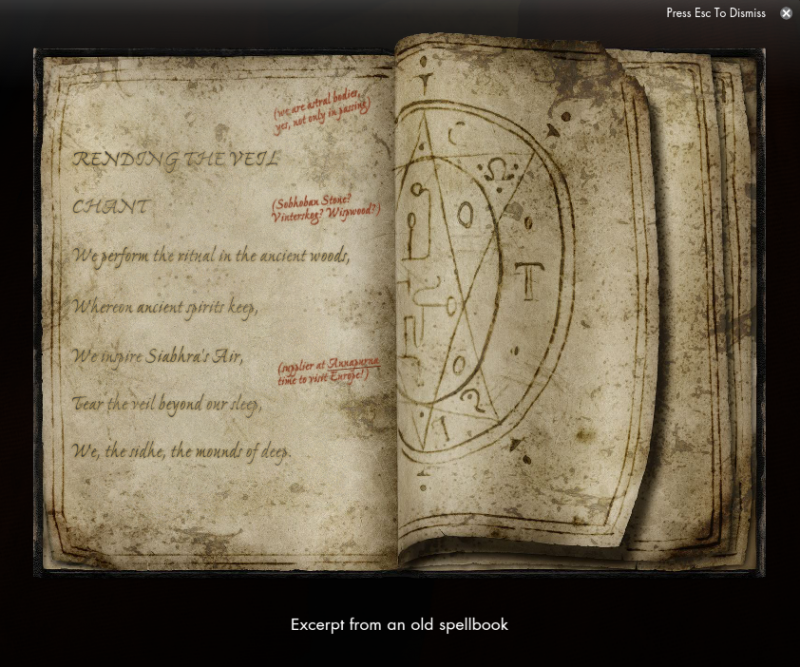 Press Esc To Dismiss
(we are astral bodies,
yes, not only in passing)
RENDING THE VEIL
CHANT
(Sobhoban Stone?
Vinterskog? Wispwood?)
We perform the ritual in the ancient woods,
Whereon ancient spirits keep,
We inspire Siabhra's Air,
(supplier at Annapurna
time to visit Europe!)
Tear the veil beyond our sleep,
We, the sidhe, the mounds of deep.
Excerpt from an old spellbook